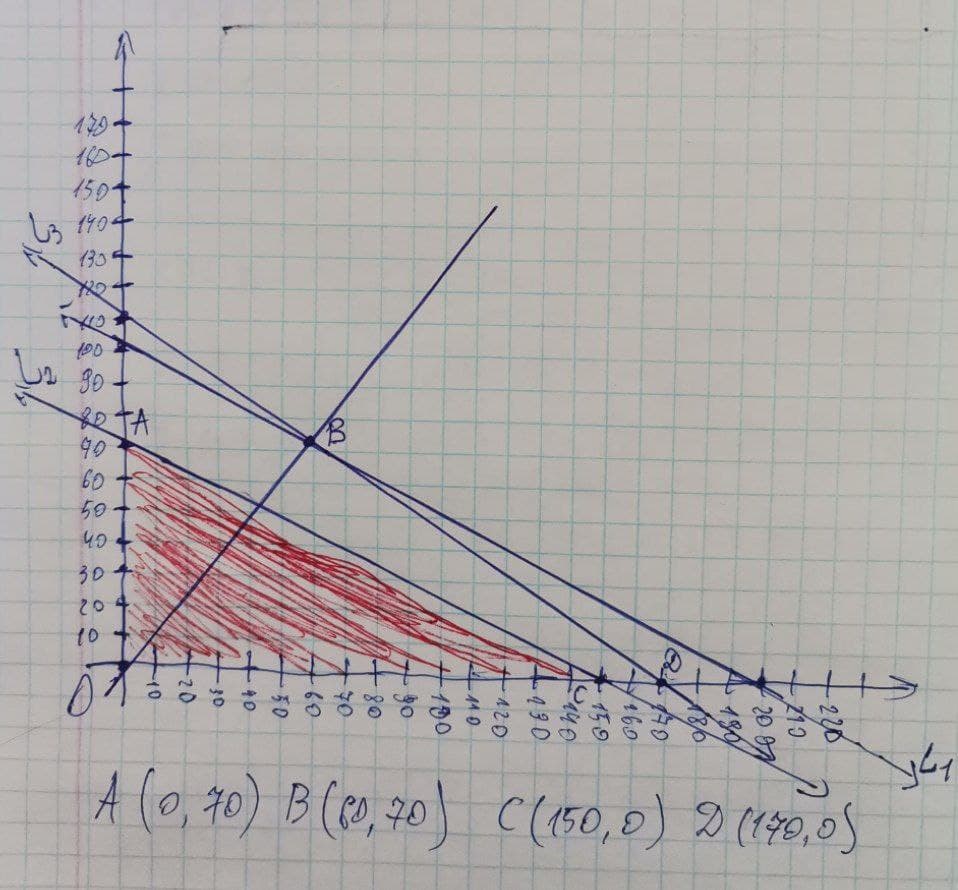 170
160
150
140
L3
130
120
110
100
L2
90
80 A
70 B
60
50
40
30
20
10
D
O 10 20 30 40 50 60 70 80 90 100 110 120 130 140 C 150 160 170 180 190 200 210 220
L1
A (0, 70) B (60, 70) C (150, 0) D (170, 0)